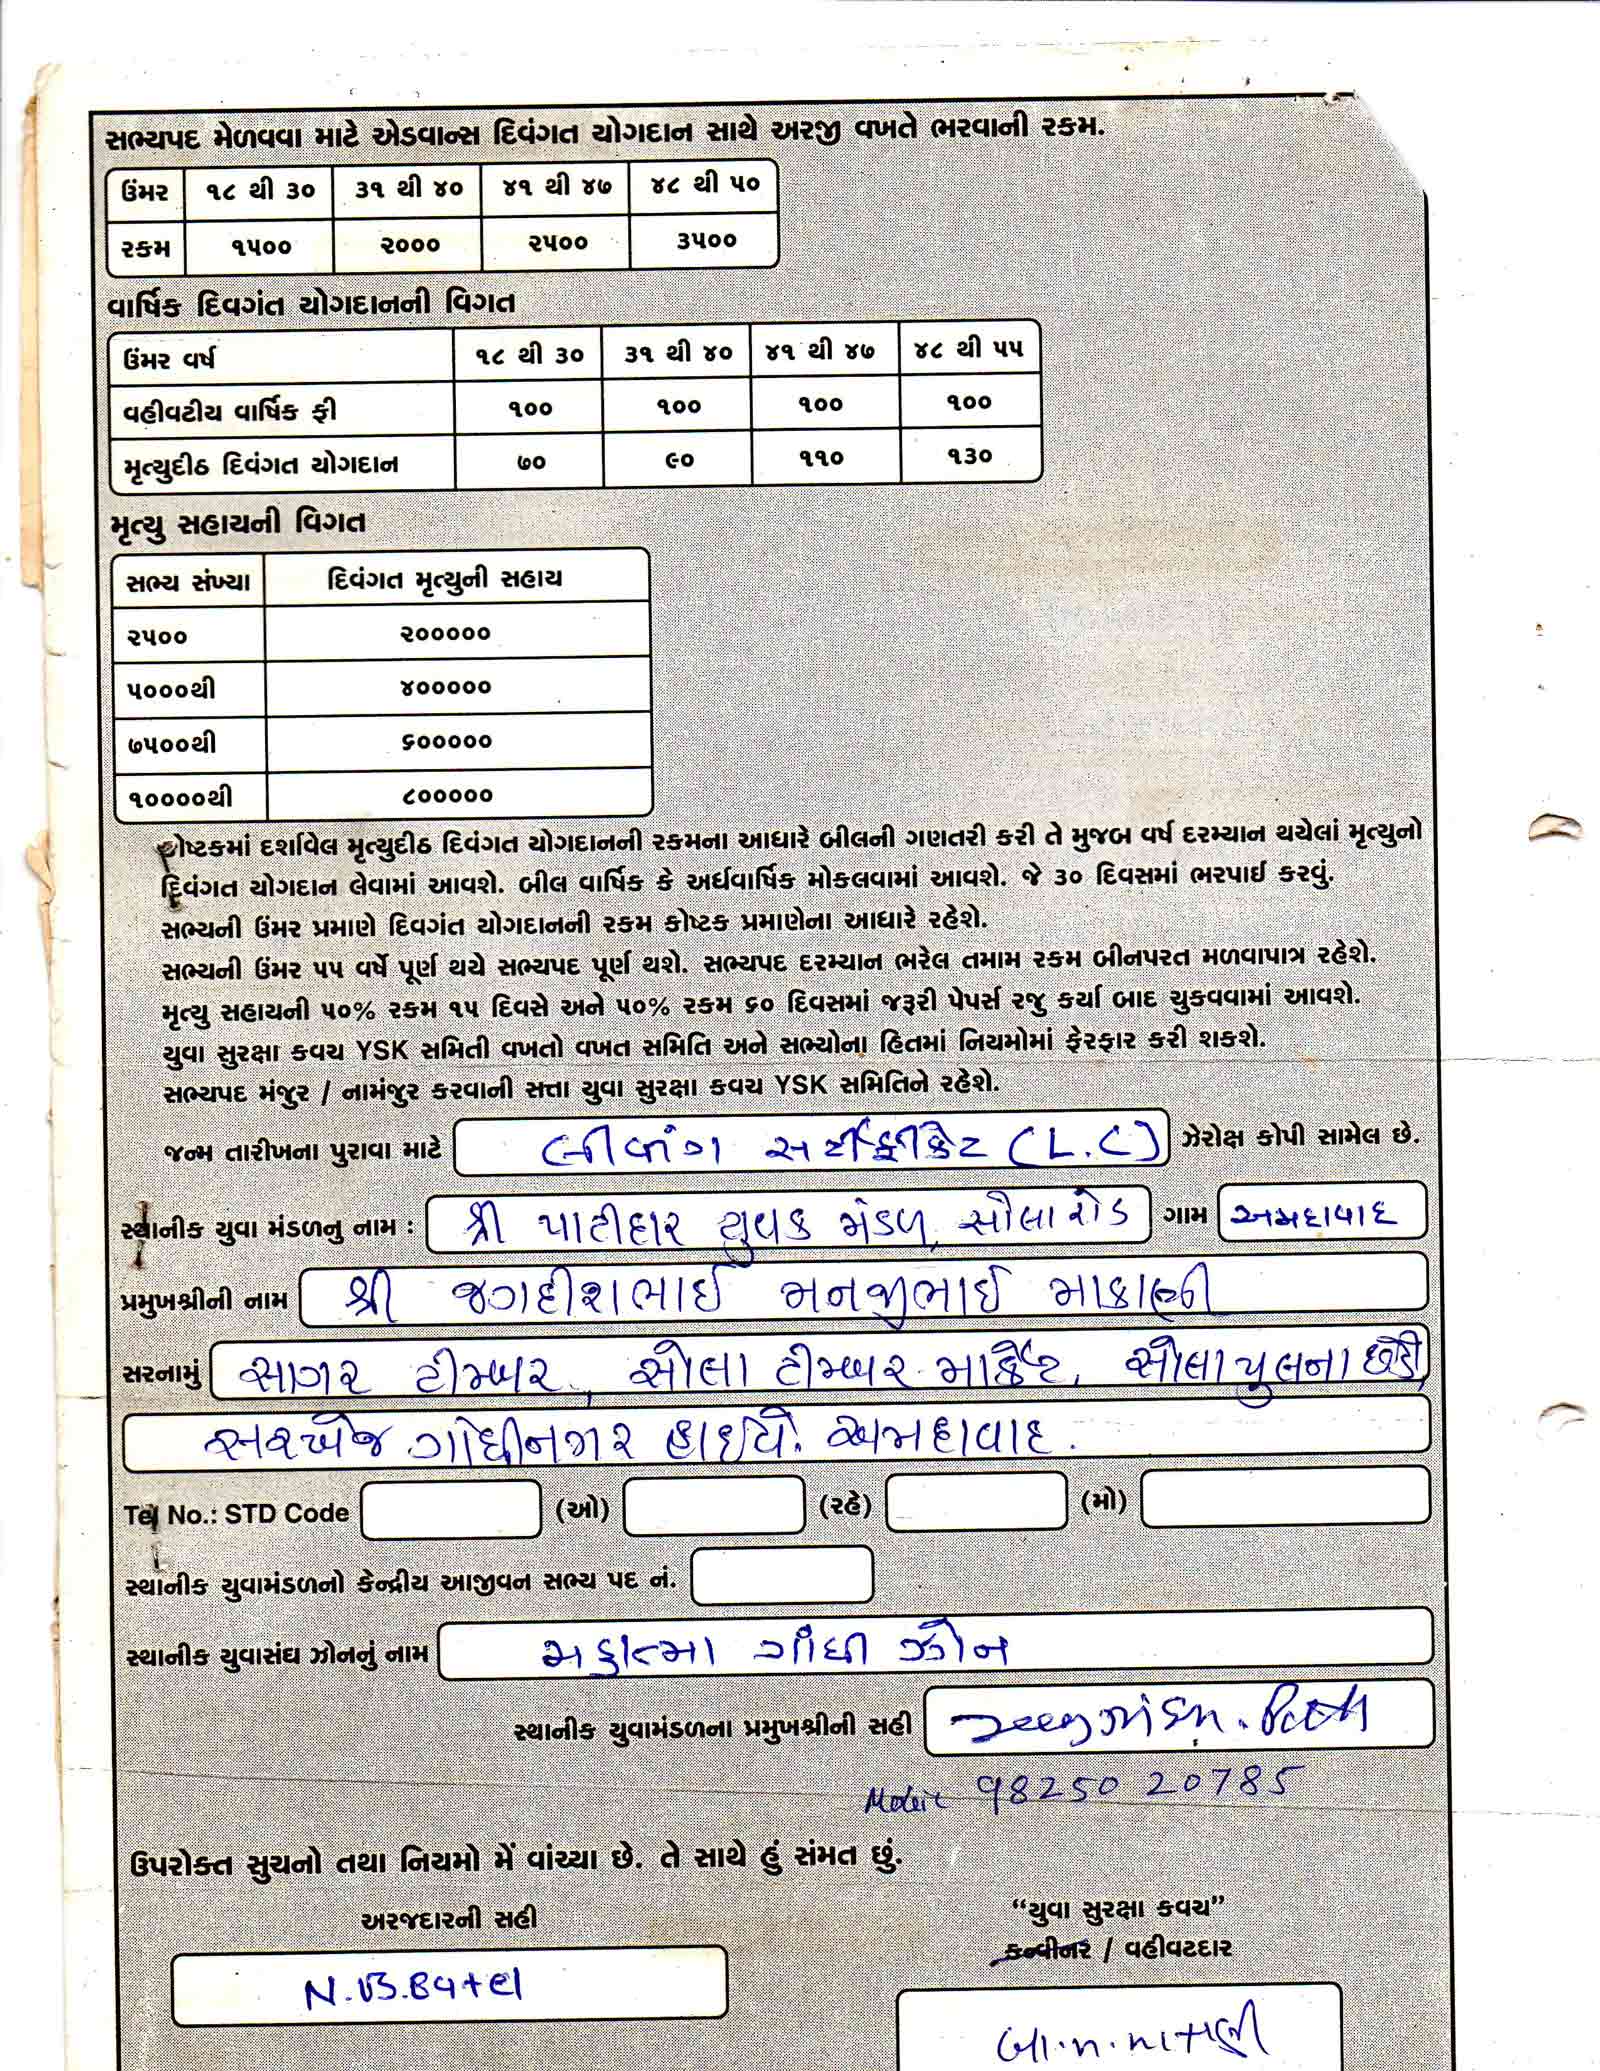 સભ્યપદ મેળવવા માટે એડવાન્સ દિવંગત યોગદાન સાથે અરજી વખતે ભરવાની રકમ.
ઉંમર ૧૮ થી ૩૦ ૩૧ થી ૪૦ ૪૧ થી ૪૭ ૪૮ થી ૫૦
રકમ ૧૫૦૦ ૨૦૦૦ ૨૫૦૦ ૩૫૦૦
વાર્ષિક દિવગંત યોગદાનની વિગત
ઉંમર વર્ષ ૧૮ થી ૩૦ ૩૧ થી ૪૦ ૪૧ થી ૪૭ ૪૮ થી ૫૫
વહીવટીય વાર્ષિક ફી ૧૦૦ ૧૦૦ ૧૦૦ ૧૦૦
મૃત્યુદીઠ દિવંગત યોગદાન ૭૦ ૯૦ ૧૧૦ ૧૩૦
મૃત્યુ સહાયની વિગત
સભ્ય સંખ્યા દિવંગત મૃત્યુની સહાય
૨૫૦૦ ૨૦૦૦૦૦
૫૦૦૦થી ૪૦૦૦૦૦
૭૫૦૦થી ૬૦૦૦૦૦
૧૦૦૦૦થી ૮૦૦૦૦૦
કોષ્ટકમાં દર્શાવેલ મૃત્યુદીઠ દિવંગત યોગદાનની રકમના આધારે બીલની ગણતરી કરી તે મુજબ વર્ષ દરમ્યાન થયેલાં મૃત્યુનો
દિવંગત યોગદાન લેવામાં આવશે. બીલ વાર્ષિક કે અર્ધવાર્ષિક મોકલવામાં આવશે. જે ૩૦ દિવસમાં ભરપાઈ કરવું.
સભ્યની ઉંમર પ્રમાણે દિવગંત યોગદાનની રકમ કોષ્ટક પ્રમાણેના આધારે રહેશે.
સભ્યની ઉંમર ૫૫ વર્ષે પૂર્ણ થયે સભ્યપદ પૂર્ણ થશે. સભ્યપદ દરમ્યાન ભરેલ તમામ રકમ બીનપરત મળવાપાત્ર રહેશે.
મૃત્યુ સહાયની ૫૦% રકમ ૧૫ દિવસે અને ૫૦% રકમ ૬૦ દિવસમાં જરૂરી પેપર્સ રજુ કર્યા બાદ ચુકવવામાં આવશે.
યુવા સુરક્ષા કવચ YSK સમિતી વખતો વખત સમિતિ અને સભ્યોના હિતમાં નિયમોમાં ફેરફાર કરી શકશે.
સભ્યપદ મંજુર / નામંજુર કરવાની સત્તા યુવા સુરક્ષા કવચ YSK સમિતિને રહેશે.
જન્મ તારીખના પુરાવા માટે લીવીંગ સર્ટીફીકેટ (L.C) ઝેરોક્ષ કોપી સામેલ છે.
સ્થાનીક યુવા મંડળનુ નામ : શ્રી પાટીદાર યુવક મંડળ, સોલા રોડ ગામ અમદાવાદ
પ્રમુખશ્રીની નામ શ્રી જગદીશભાઈ મનજીભાઈ માકાણી
સરનામું સાગર ટીમ્બર, સોલા ટીમ્બર માર્કેટ, સોલા પુલના છેડે,
સરખેજ ગાંધીનગર હાઈવે. અમદાવાદ.
Tel No.: STD Code (ઓ) (રહે) (મો)
સ્થાનીક યુવામંડળનો કેન્દ્રીય આજીવન સભ્ય પદ નં.
સ્થાનીક યુવાસંઘ ઝોનનું નામ મહાત્મા ગાંધી ઝોન
સ્થાનીક યુવામંડળના પ્રમુખશ્રીની સહી
98250 20785
ઉપરોક્ત સુચનો તથા નિયમો મેં વાંચ્યા છે. તે સાથે હું સંમત છું.
અરજદારની સહી
“યુવા સુરક્ષા કવચ”
કન્વીનર / વહીવટદાર
N.B.Patel